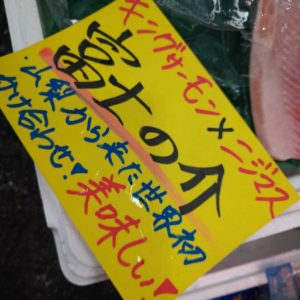 キングサーモン×ニジマス
富士の介
山梨から来た世界初
かけ合わせ!
美味しい!